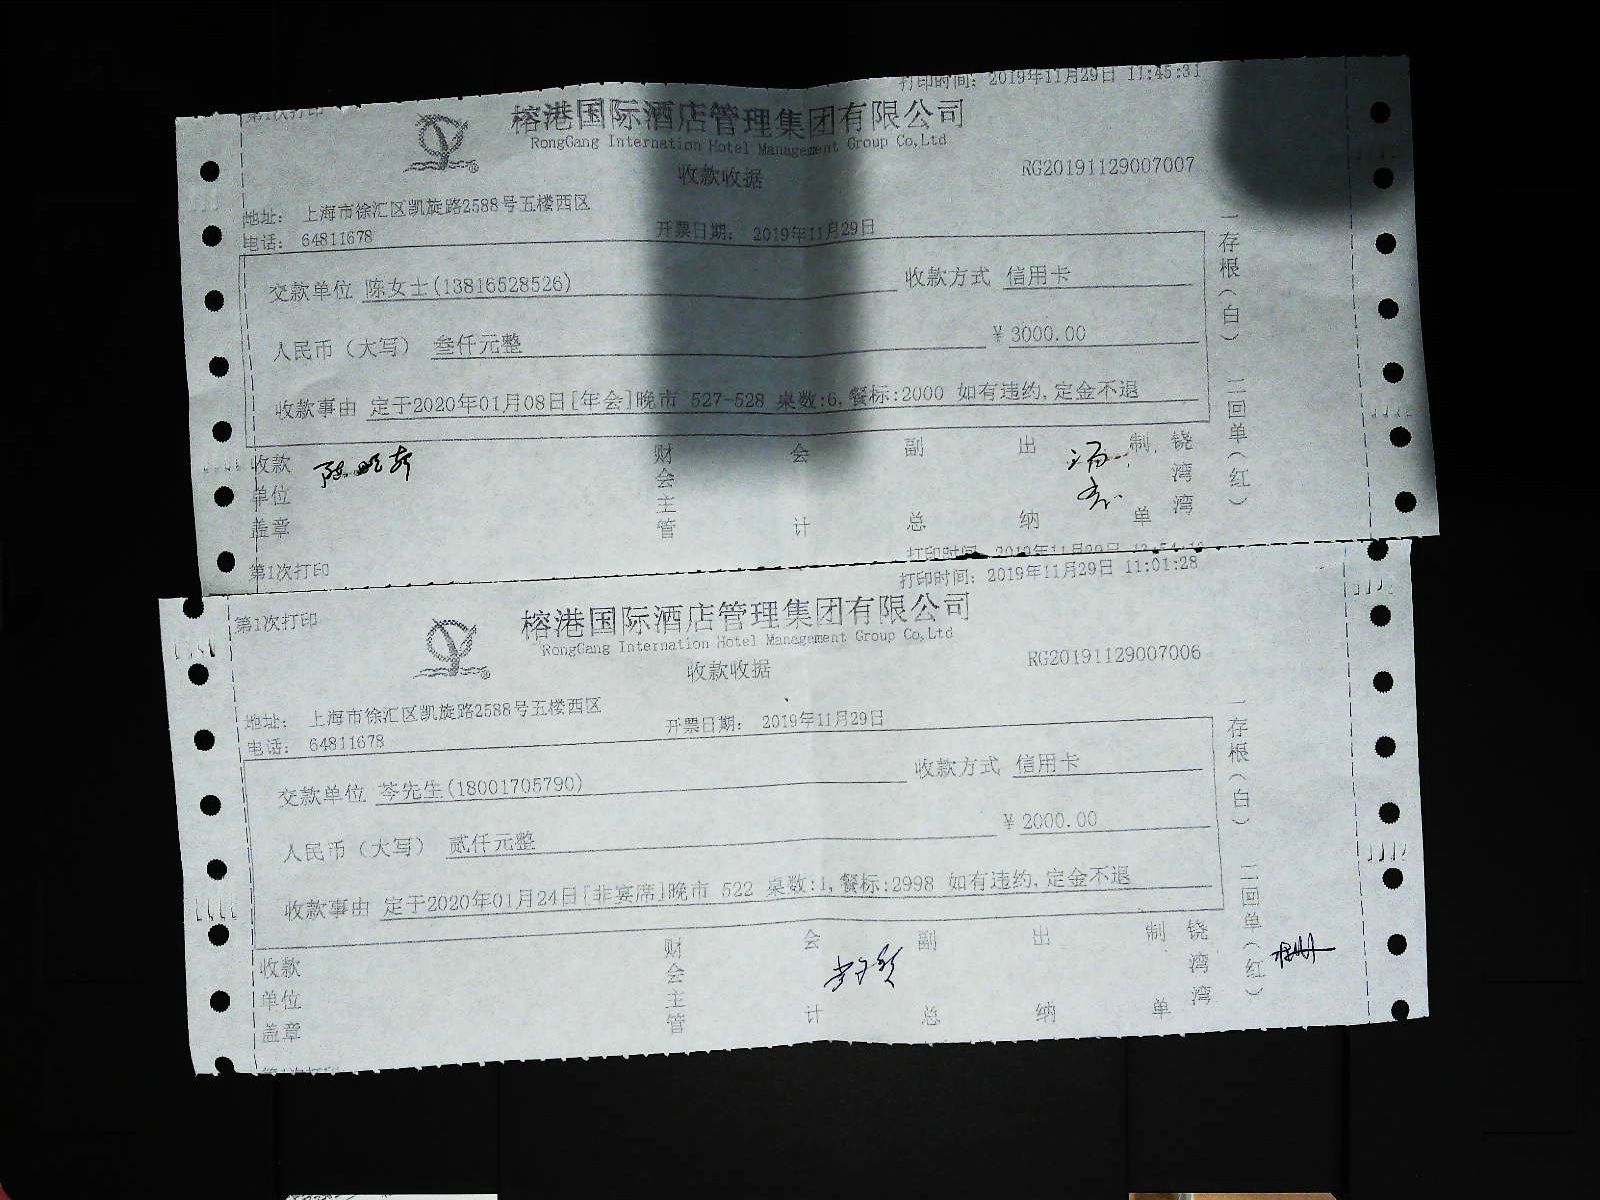 第1次打印
打印时间: 2019年11月29日 11:45:31
榕港国际酒店管理集团有限公司
RongGang Internation Hotel Management Group Co,Ltd
收款收据
RG20191129007007
地址: 上海市徐汇区凯旋路2588号五楼西区
电话: 64811678
开票日期: 2019年11月29日
交款单位 陈女士(13816528526) 收款方式 信用卡
人民币（大写） 叁仟元整 ¥ 3000.00
收款事由 定于2020年01月08日[年会]晚市 527-528 桌数:6,餐标:2000 如有违约,定金不退
一存根（白） 二回单（红）
收款单位盖章 财会主管 会计 副总 出纳 制单 铙湾湾
第1次打印
打印时间: 2019年11月29日
第1次打印
打印时间: 2019年11月29日 11:01:28
榕港国际酒店管理集团有限公司
RongGang Internation Hotel Management Group Co,Ltd
收款收据
RG20191129007006
地址: 上海市徐汇区凯旋路2588号五楼西区
电话: 64811678
开票日期: 2019年11月29日
交款单位 苓先生(18001705790) 收款方式 信用卡
人民币（大写） 贰仟元整 ¥ 2000.00
收款事由 定于2020年01月24日[非宴席]晚市 522 桌数:1,餐标:2998 如有违约,定金不退
一存根（白） 二回单（红）
收款单位盖章 财会主管 会计 副总 出纳 制单 铙湾湾